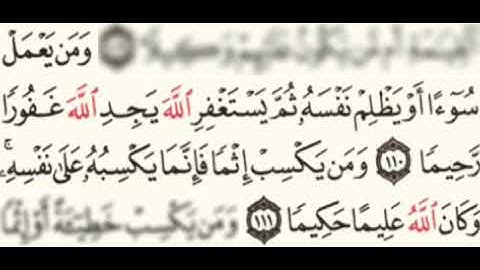 وَمَن يَعْمَلْ
سُوٓءًا أَوْ يَظْلِمْ نَفْسَهُۥ ثُمَّ يَسْتَغْفِرِ ٱللَّهَ يَجِدِ ٱللَّهَ غَفُورًا
رَّحِيمًا ١١٠ وَمَن يَكْسِبْ إِثْمًا فَإِنَّمَا يَكْسِبُهُۥ عَلَىٰ نَفْسِهِۦ ۚ
وَكَانَ ٱللَّهُ عَلِيمًا حَكِيمًا ١١١ وَمَن يَكْسِبْ خَطِيٓـَٔةً أَوْ إِثْمًا